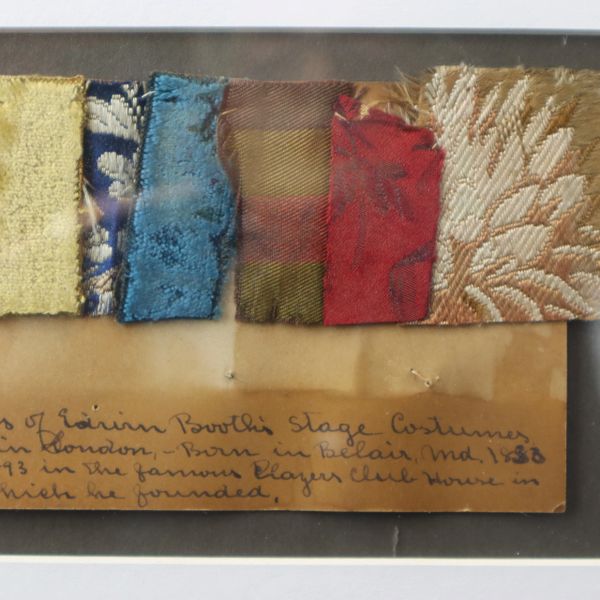 s of Edwin Booth's Stage Costumes
in London, - Born in Belair, Md. 1833
93 in the famous Players Club House in
which he founded.